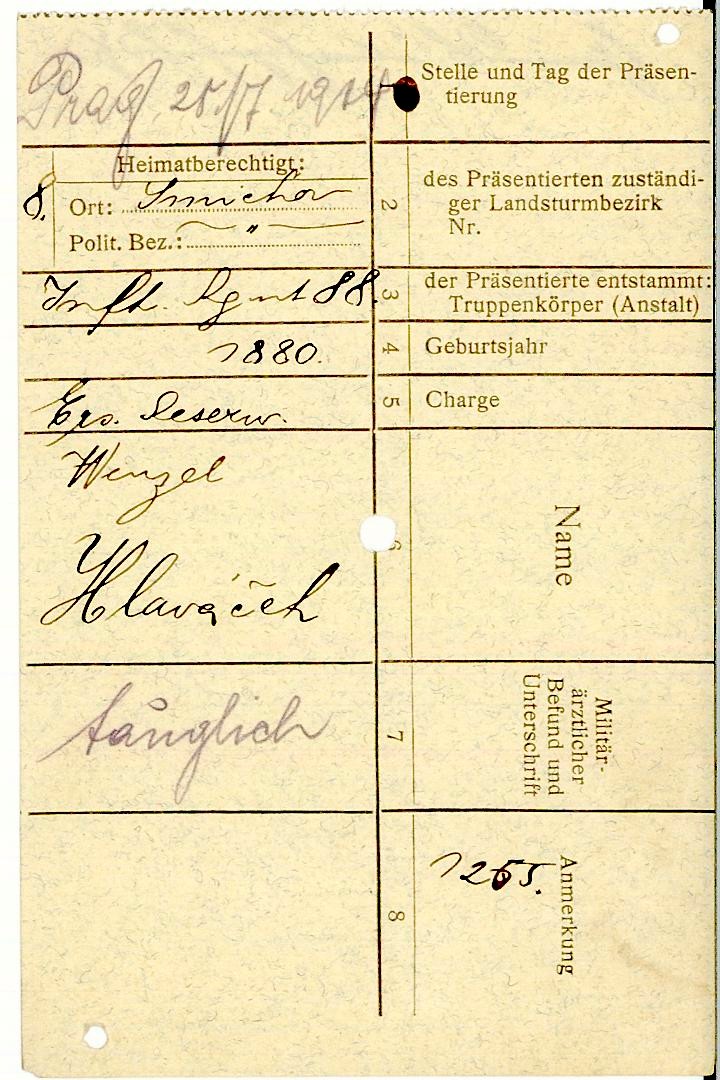 Prag, 25/7 1914
Stelle und Tag der Präsen-
tierung
Heimatberechtigt:
8.
Ort: Smichov
Polit. Bez.: "
2
des Präsentierten zuständi-
ger Landsturmbezirk
Nr.
Inft. Rgmt 88.
3
der Präsentierte entstammt:
Truppenkörper (Anstalt)
1880.
4
Geburtsjahr
Ers. Reserv.
5
Charge
Wenzel
Hlaváček
6
Name
tauglich
7
Militär-
ärztlicher
Befund und
Unterschrift
8
1255.
Anmerkung